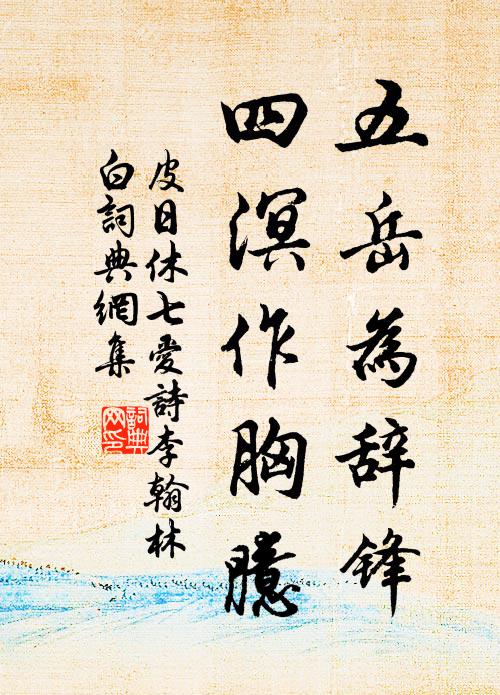 五岳為辞锋
四溟作胸臆
皮日休七愛詩李翰林
白詞典網集
詞典網印